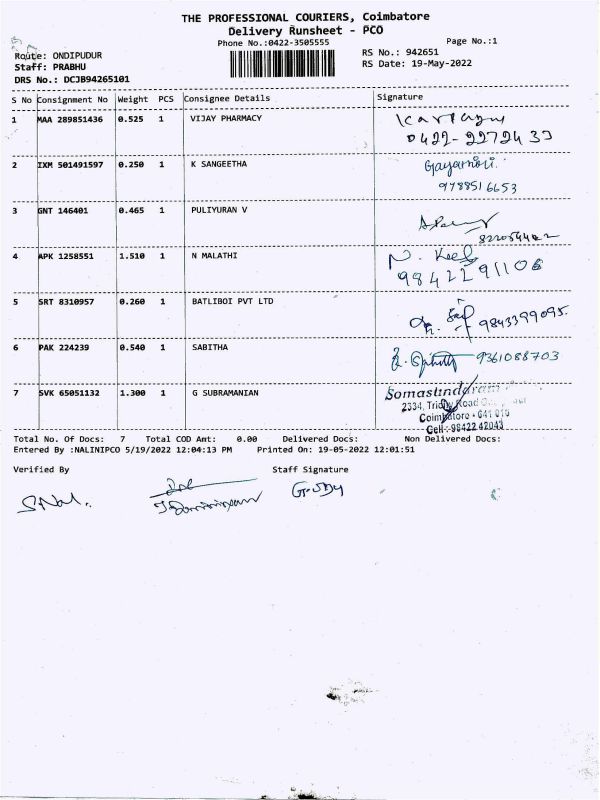 THE PROFESSIONAL COURIERS, Coimbatore
Delivery Runsheet - PCO
Phone No.:0422-3505555
Page No.:1
Route: ONDIPUDUR
RS No.: 942651
Staff: PRABHU
RS Date: 19-May-2022
DRS No.: DCJB94265101
S No Consignment No Weight PCS Consignee Details Signature
1 MAA 289851436 0.525 1 VIJAY PHARMACY
0422-2272433
2 IXM 501491597 0.250 1 K SANGEETHA Gayathiri.
9788516653
3 GNT 146401 0.465 1 PULIYURAN V
4 APK 1258551 1.510 1 N MALATHI N.
9842291106
5 SRT 8310957 0.260 1 BATLIBOI PVT LTD
9843399095.
6 PAK 224239 0.540 1 SABITHA 9361088703
7 SVK 65051132 1.300 1 G SUBRAMANIAN Somasundaram
2334, Trichy Road
Coimbatore - 641 015
Cell : 98422 42043
Total No. Of Docs: 7 Total COD Amt: 0.00 Delivered Docs: Non Delivered Docs:
Entered By :NALINIPCO 5/19/2022 12:04:13 PM Printed On: 19-05-2022 12:01:51
Verified By Staff Signature